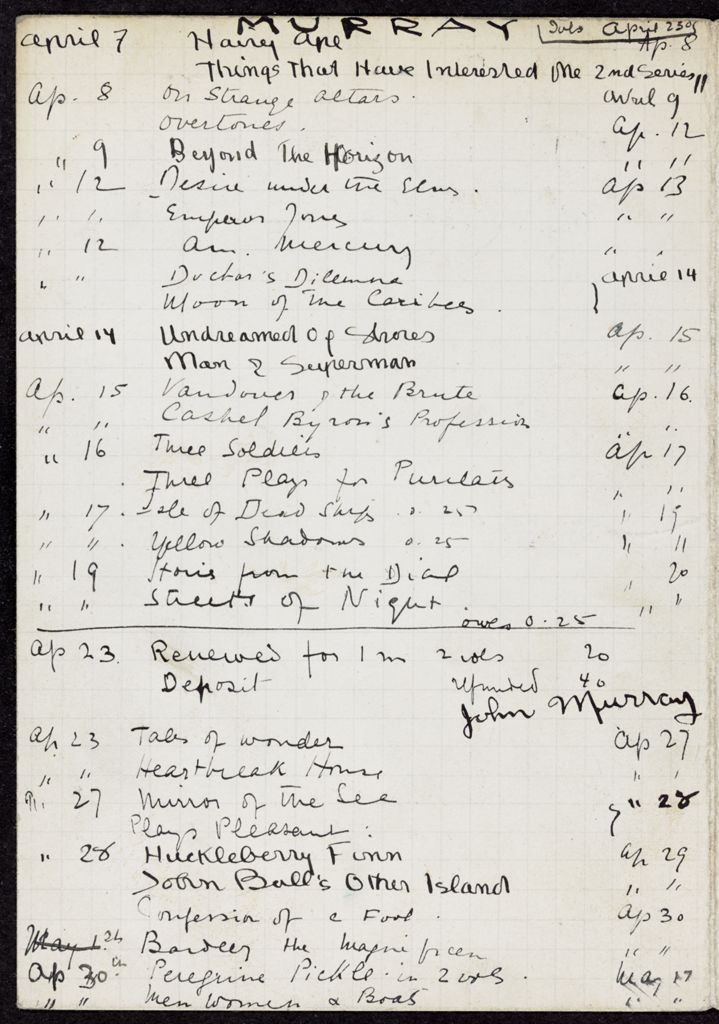 MURRAY 2 vols April 23rd
April 7 Hairy Ape Ap. 8
Things That Have Interested Me 2nd Series "
Ap. 8 On Strange Altars. April 9
Overtones. Ap. 12
" 9 Beyond The Horizon " "
" 12 Desire under the Elms. Ap 13
" " Emperor Jones " "
" 12 Am. Mercury " "
" " Doctor's Dilemma April 14
Moon of the Caribees.
April 14 Undreamed Of Shores Ap. 15
Man & Superman " "
Ap. 15 Vandover & the Brute Ap. 16.
" " Cashel Byron's Profession " "
" 16 Three Soldiers Ap 17
Three Plays for Puritans " "
" 17. Isle of Dead Ships 0.25 " 19
" " . Yellow Shadows 0.25 " "
" 19 Stories from the Dial " 20
" " Streets of Night. " "
owes 0.25
Ap 23. Renewed for 1 m 2 vols 20
Deposit refunded 40
John Murray
Ap 23 Tales of wonder Ap 27
" " Heartbreak House " "
" 27 Mirror of the Sea " 28
Plays Pleasant.
" 28 Huckleberry Finn Ap 29
John Bull's Other Island " "
Confession of a Fool. Ap 30
May 1 Bardley the Magnificen " "
Ap 30th Peregrine Pickle in 2 vols. May 17
" " Men Women & Boats " "